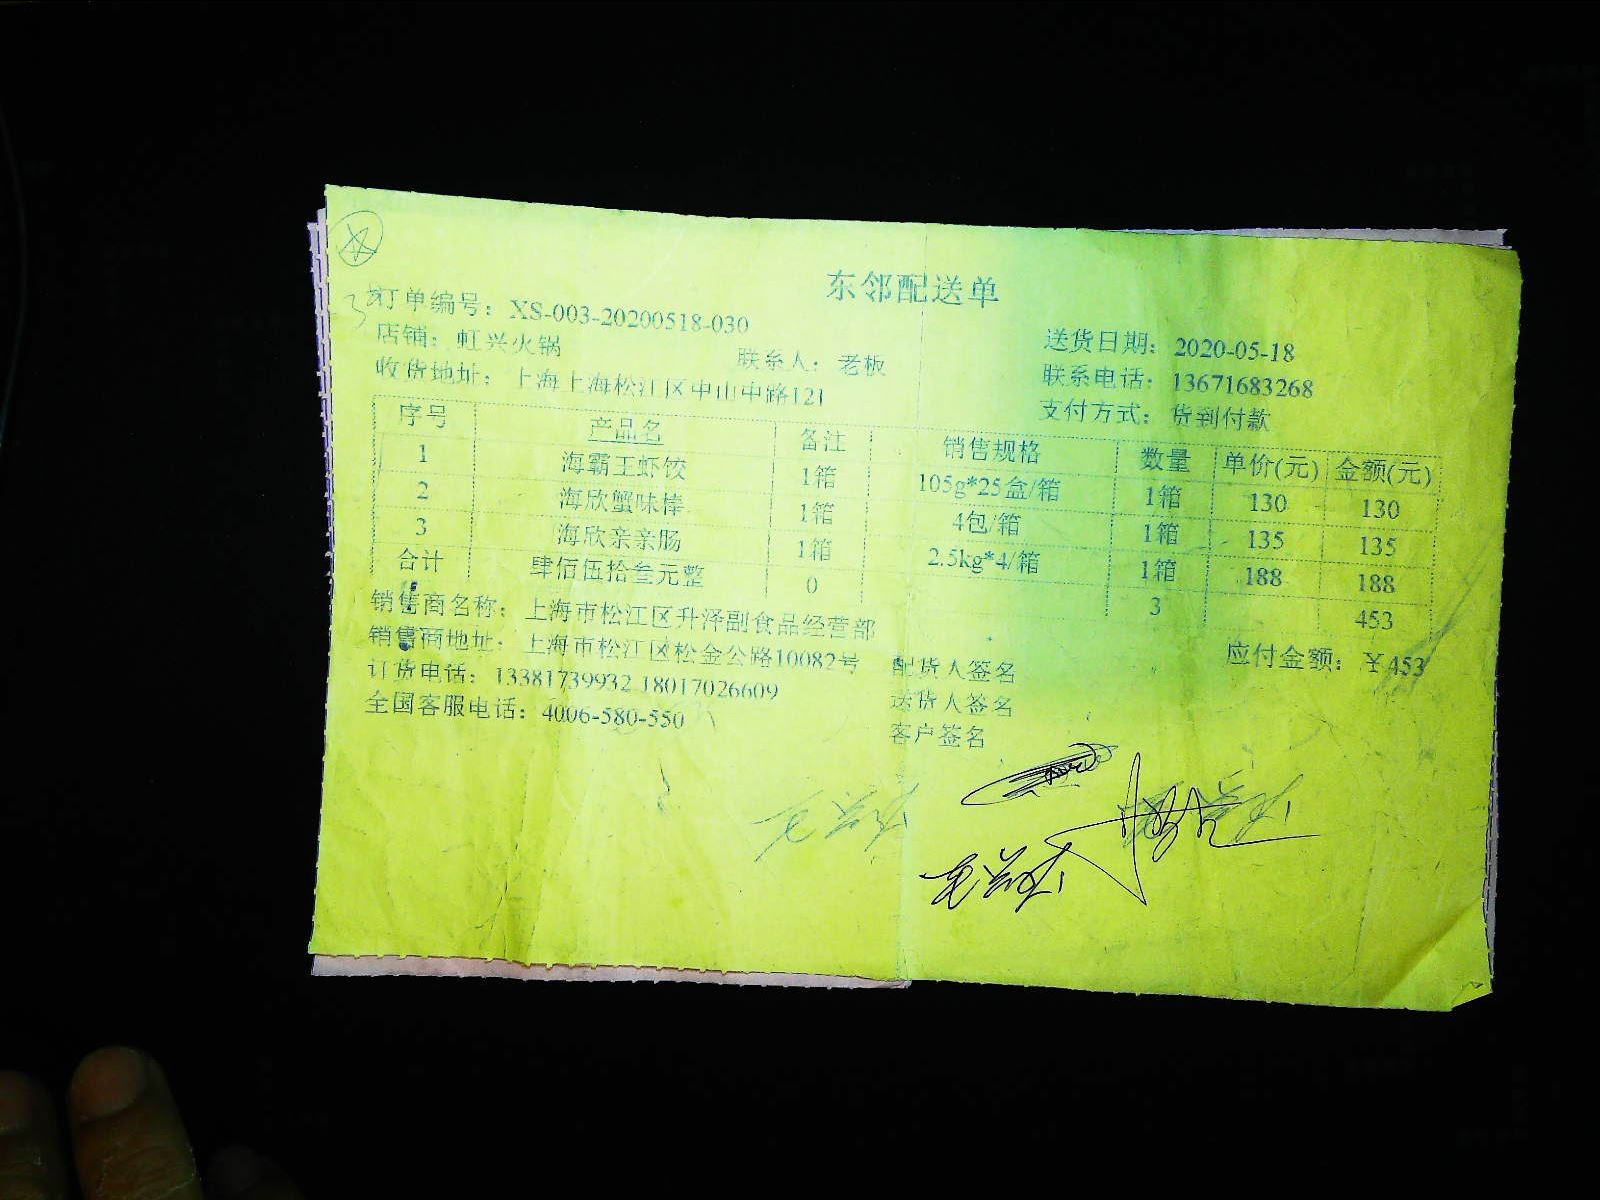 东邻配送单
订单编号：XS-003-20200518-030 送货日期：2020-05-18
店铺：虹兴火锅 联系人：老板 联系电话：13671683268
收货地址：上海上海松江区中山中路121 支付方式：货到付款
序号 产品名 备注 销售规格 数量 单价(元) 金额(元)
1 海霸王虾饺 1箱 105g*25盒/箱 1箱 130 130
2 海欣蟹味棒 1箱 4包/箱 1箱 135 135
3 海欣亲亲肠 1箱 2.5kg*4/箱 1箱 188 188
合计 肆佰伍拾叁元整 0 3 453
销售商名称：上海市松江区升泽副食品经营部 应付金额：￥453
销售商地址：上海市松江区松金公路10082号 配货人签名
订货电话：13381739932 18017026609 送货人签名
全国客服电话：4006-580-550 客户签名